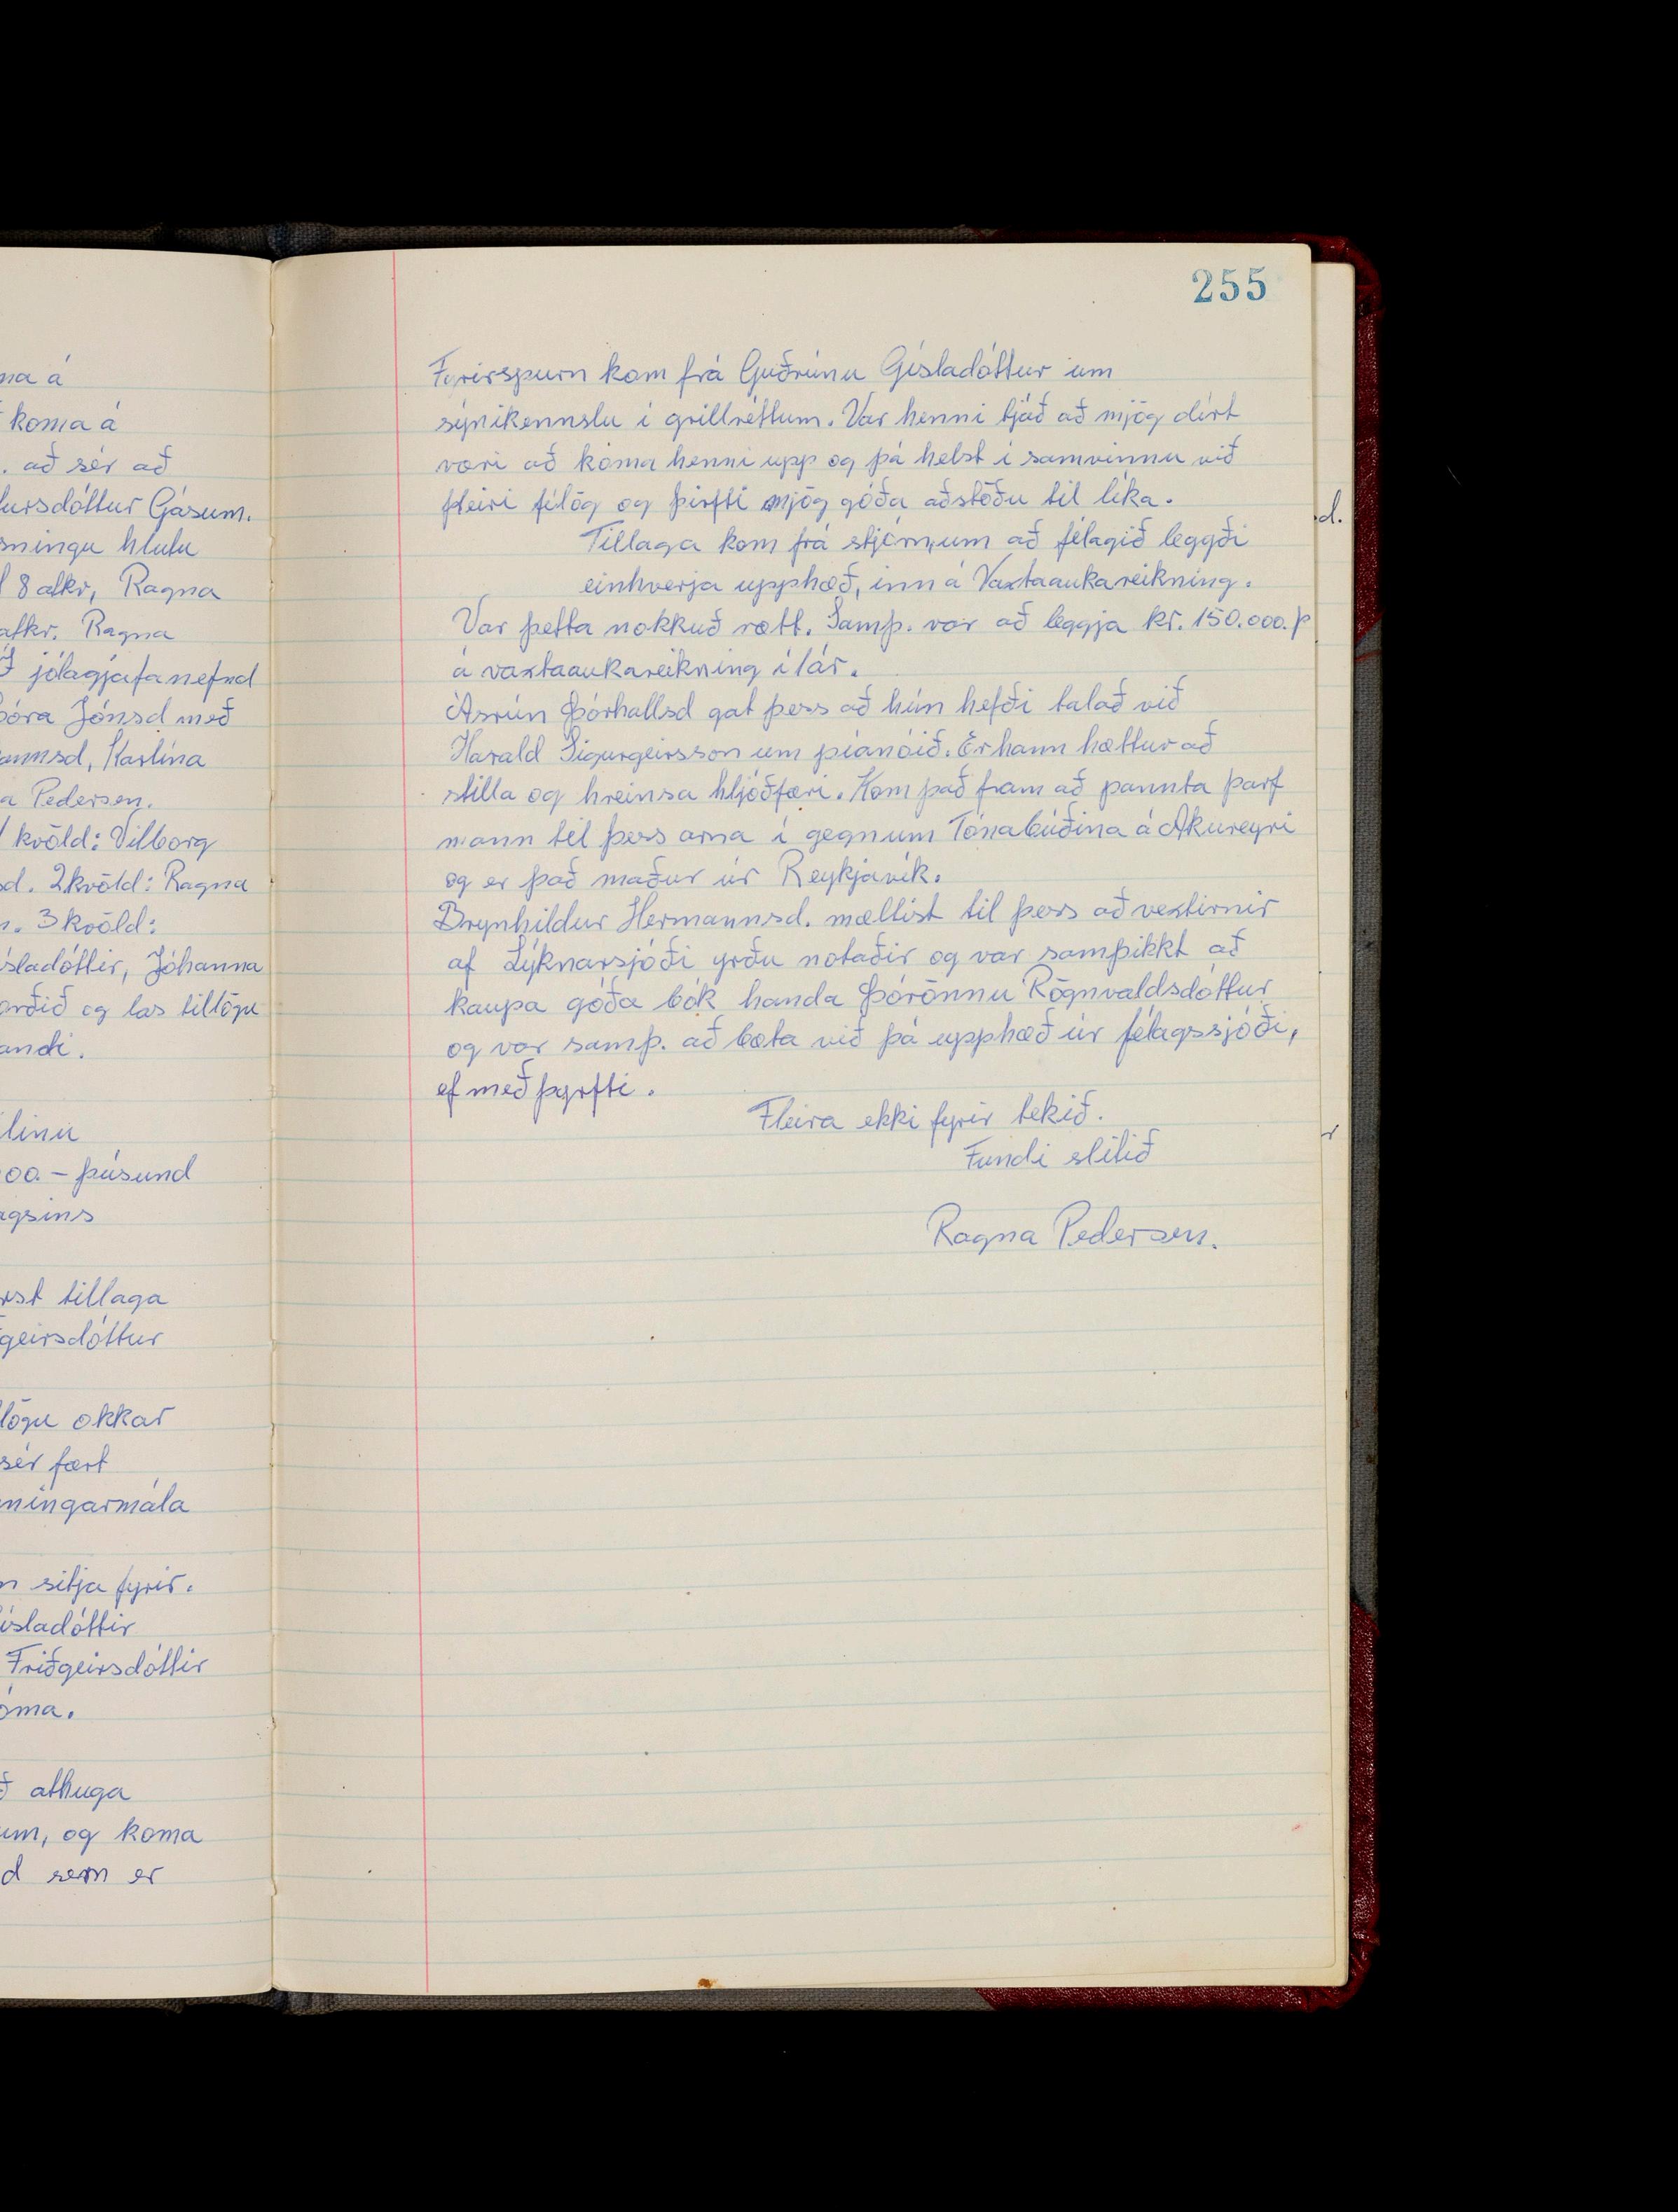 na á
koma á
. að sér að
ursdóttur Gásum.
sningu hlutu
8 atkv, Ragna
atkv. Ragna
Í jólagjafanefnd
óra Jónsd með
annsd, Karlína
a Pedersen.
kvöld: Vilborg
sd. 2kvöld: Ragna
n. 3kvöld:
ísladóttir, Jóhanna
orðið og las tillögu
andi.
línu
00 - þúsund
agsins
rst tillaga
geirsdóttur
lögu okkar
sér fært
ningarmála
n sitja fyrir.
ísladóttir
Friðgeirsdóttir
óma.
ð athuga
um, og koma
d sem er
255
Fyrirspurn kom frá Guðrúnu Gísladóttur um
sýnikennslu í grillréttum. Var henni tjáð að mjög dírt
væri að koma henni upp og þá helst í samvinnu við
fleiri félög og þirfti mjög góða aðstöðu til líka.
Tillaga kom frá stjórnnum að félagið leggði
einhverja upphæð, inn á Vaxtaaukareikning.
Var þetta nokkuð rætt. Samþ. var að leggja kr. 150.000.þ
á vaxtaaukareikning í 1ár.
Ásrún Þórhallsd gat þess að hún hefði talað við
Harald Sigurgeirsson um píanóið. Er hann hættur að
stilla og hreinsa hljóðfæri. Kom það fram að pannta þarf
mann til þess arna í gegnum Tónabúðina á Akureyri
og er það maður úr Reykjavík.
Brynhildur Hermannsd. mæltist til þess að vextirnir
af Líknarsjóði yrðu notaðir og var samþikkt að
kaupa góða bók handa Þórönnu Rögnvaldsdóttur
og var samþ. að bæta við þá upphæð úr félagssjóði,
ef með þyrfti.
Fleira ekki fyrir tekið.
Fundi slitið
Ragna Pedersen.
d.
r